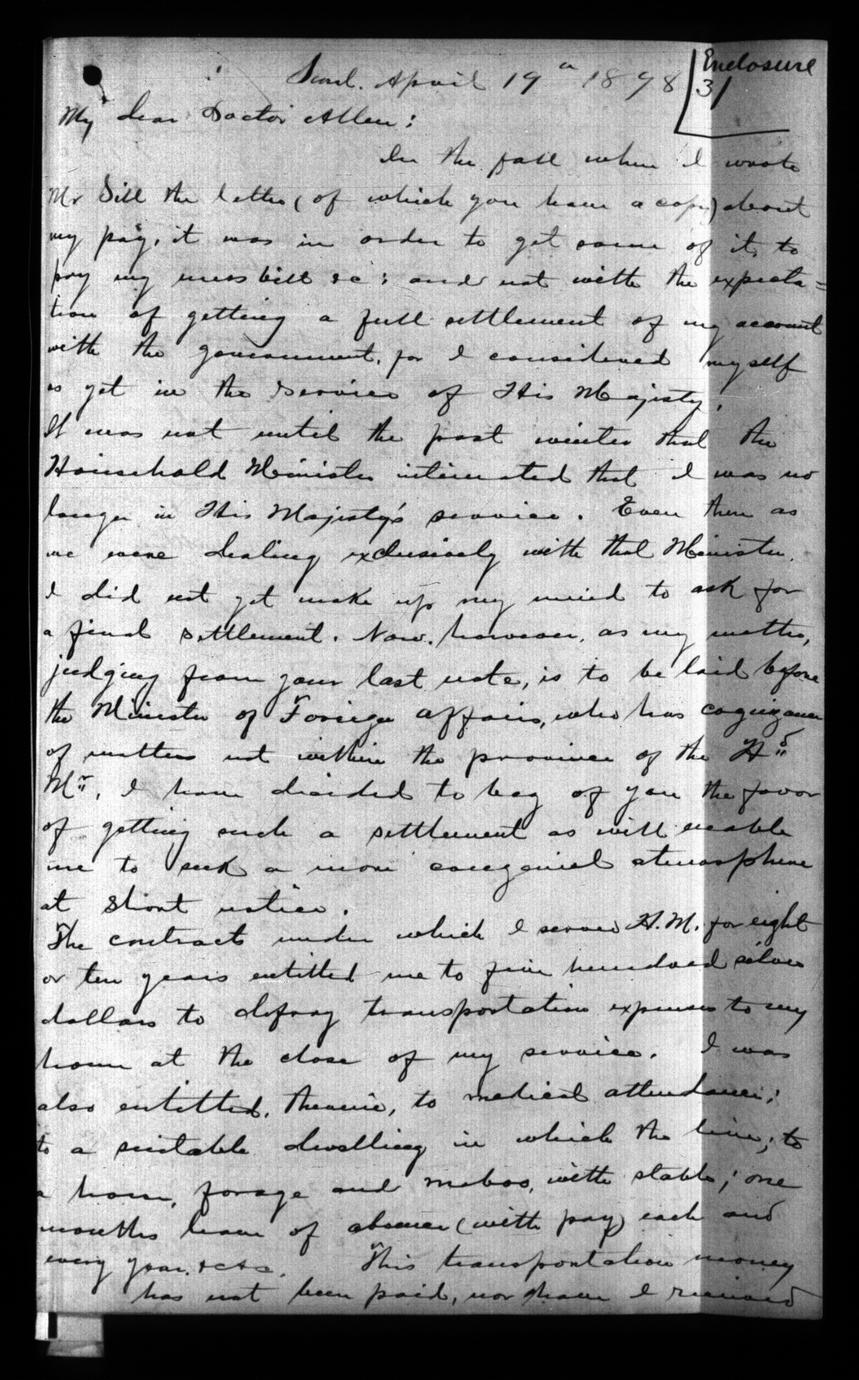 Enclosure
3
Seoul. April 19" 1898
My dear Doctor Allen:
In the fall when I wrote
Mr Sill the letter (of which you have a copy) about
my pay, it was in order to get some of it, to
pay my mess bill &c; and not with the expecta=
tion of getting a full settlement of my account
with the government, for I considered myself
as yet in the Service of His Majesty.
It was not until the past winter that the
Household Minister intimated that I was no
longer in His Majesty's service. Even then as
we were dealing exclusively with that Minister.
I did not yet make up my mind to ask for
a final settlement. Now, however, as my matter,
judging from your last note, is to be laid before
the Minister of Foreign affairs, who has cognizance
of matters not within the province of the Hd
Mr, I have decided to beg of you the favor
of getting such a settlement as will enable
me to seek a more congenial atmosphere
at short notice.
The contract under which I served H.M. for eight
or ten years entitled me to five hundred silver
dollars to defray transportation expenses to my
home at the close of my service. I was
also entitled, therein, to medical attendance;
to a suitable dwelling in which the live; to
a horse, forage and maboo, with stable; one
months leave of absence (with pay) each and
every year. &c &c. This transportation money
has not been paid, nor have I received